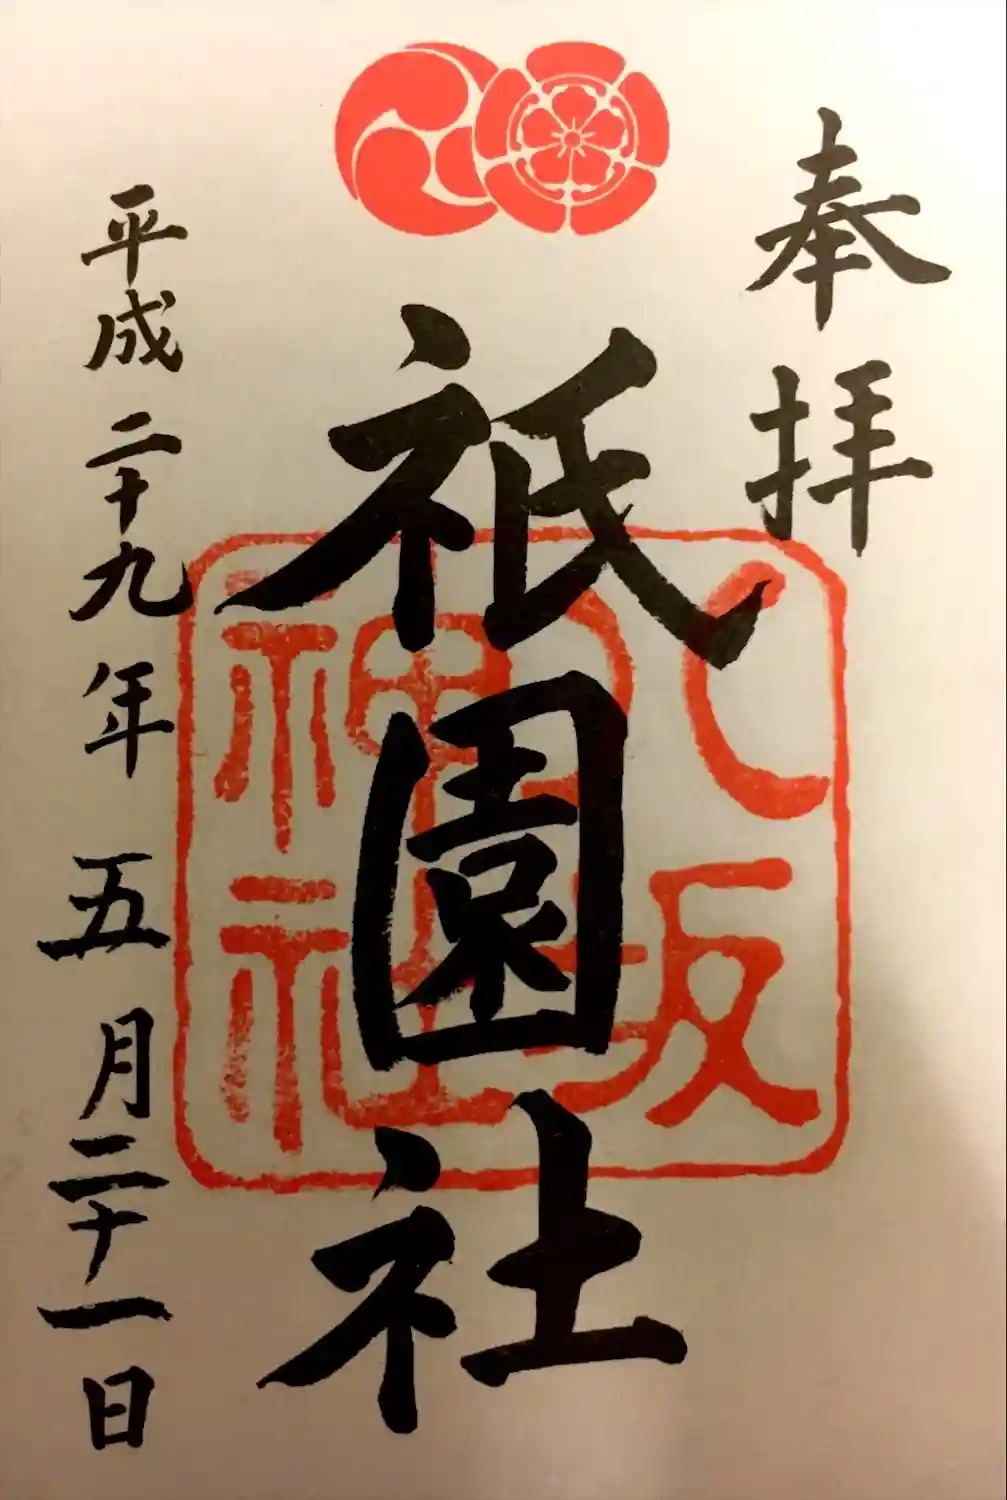 奉拝
祇園社
八坂
神社
平成二十九年五月三十一日